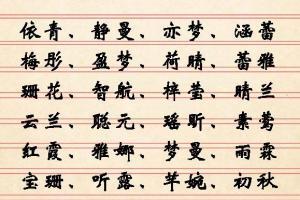 依青、静曼、亦梦、涵蕾
梅彤、盈梦、荷晴、蕾雅
珊花、智航、梓莹、晴兰
云兰、聪元、瑶昕、素莺
红霞、雅娜、梦曼、雨霖
宝珊、听露、芊婉、初秋